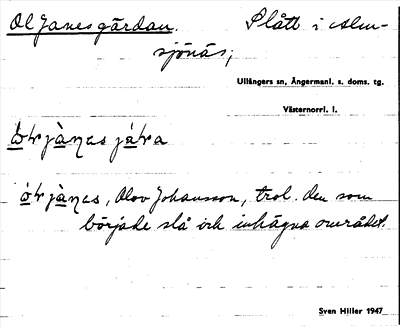 Ol Janesgärdan. Slått i Alm-
sjönäs;
Ullångers sn, Ångermanl. s. doms. tg.
Västernorrl. l.
jànes
jànes, Olov Johansson, trol. den som
började slå och inhägna området.
Sven Hiller 1947